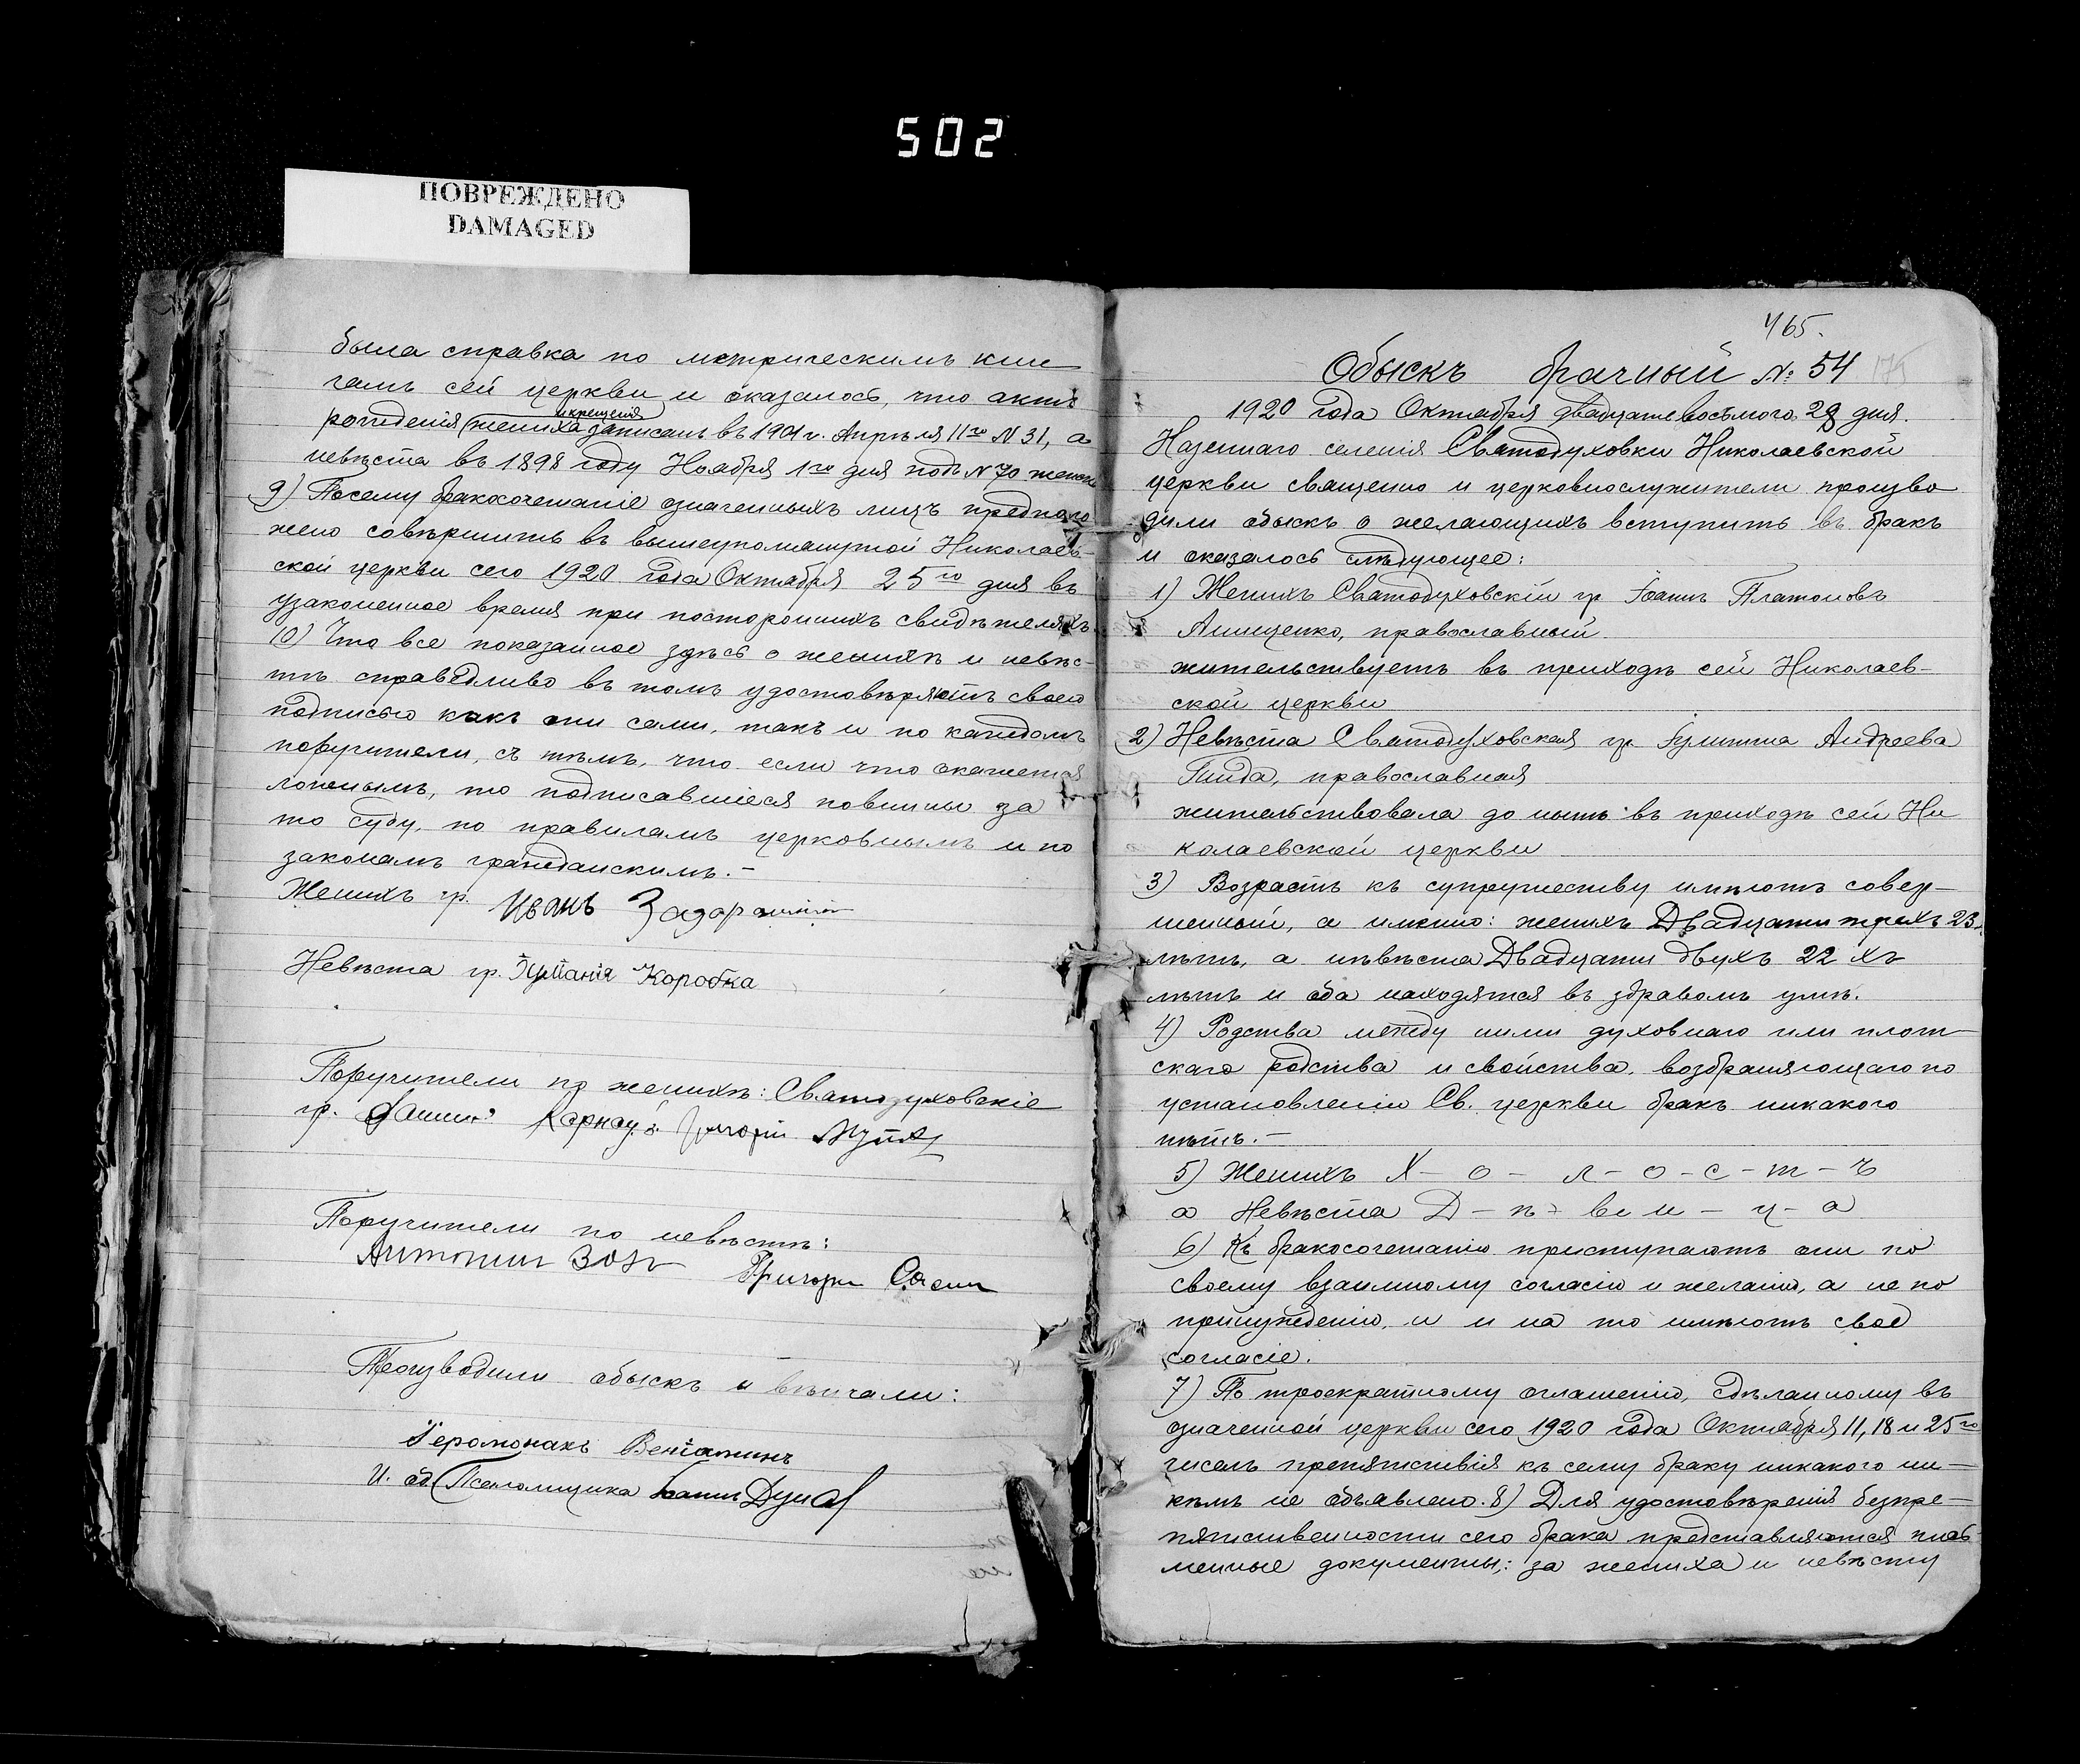 502
ПОВРЕЖДЕНО
DAMAGED
была справка по метрическимъ кни
гамъ сей церкви и оказалось, что актъ
и крещенія
рожденія жениха записанъ въ 1901 г. Апрѣля 11го N 31, а
невѣста въ 1898 году Ноября 1го дня подъ N 70 женск
9) Посему бракосочетаніе означенныхъ лицъ предполо
жено совѣршить въ вышеупомянутой Николаев-
ской церкви сего 1920 года Октября 25го дня въ
узаконенное время при постороннихъ свидѣтеляхъ.
10) Что все показанное здѣсь о женихѣ и невѣс-
тѣ справѣдливо въ томъ удостовѣряютъ своею
подписью какъ они сами, такъ и по каждомъ
поручители, съ тѣмъ, что если что окажется
ложнымъ, то подписавшіеся повинны за
то суду, по правиламъ церковнымъ и по
законамъ гражданскимъ.-
Женихъ гр. Иванъ
Невѣста гр. Коробка
Поручители по женихѣ: Святодуховскіе
гр. Карнаух Григорій
Поручители по невѣстѣ:
Антонии Григори
Производили обыскъ и вѣнчали:
Іеромонахъ Веніаминъ
И. об. Псаломщика Іоаннъ
465.
175
Обыскъ брачный № 54
1920 года Октября двадцатевосьмого 28 дня.
Казеннаго селенія Святодуховки Николаевской
церкви священно и церковнослужители произво
дили обыскъ о желающихъ вступить въ бракъ
и оказалось слѣдующее:
1) Женихъ Святодуховскій гр. Іоаннъ Платоновъ
Анищенко, православный
жительствуетъ въ приходѣ сей Николаев-
ской церкви
2) Невѣста Святодуховская гр. Іулитта Андреева
Гнида, православная
жительствовала до нынѣ въ приходѣ сей Ни
колаевской церкви
3) Возрастъ къ супружеству имѣютъ совер-
шенный, а именно: женихъ Двадцати трехъ 23
лѣтъ, а нѣвѣста Двадцати двухъ 22 хъ
лѣтъ и оба находятся въ здравомъ умѣ.
4) Родства между ними духовнаго или плот-
скаго родства и свойства, возбраняющаго по
установленію Св. церкви бракъ никакого
нѣтъ.-
5) Женихъ Х - о - л - о - с - т - ъ
а Невѣста Д - ѣ - в и - ц - а
6) Къ бракосочетанію приступаютъ они по
своему взаимному согласію и желанію, а не по
принужденію, и и на то имѣютъ свое
согласіе.
7) По троекратному оглашенію, сдѣланному въ
означенной церкви сего 1920 года Октября 11, 18 и 25го
чиселъ препятствія къ сему браку никакого ни-
кѣмъ не объявлено. 8) Для удостовѣренія безпре-
пятственности сего брака представляются пись-
менные документы,: за жениха и невѣсту